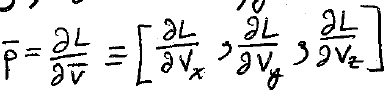 p̄ = ∂L/∂v̄ ≡ [∂L/∂Vₓ , ∂L/∂V_y , ∂L/∂V_z]